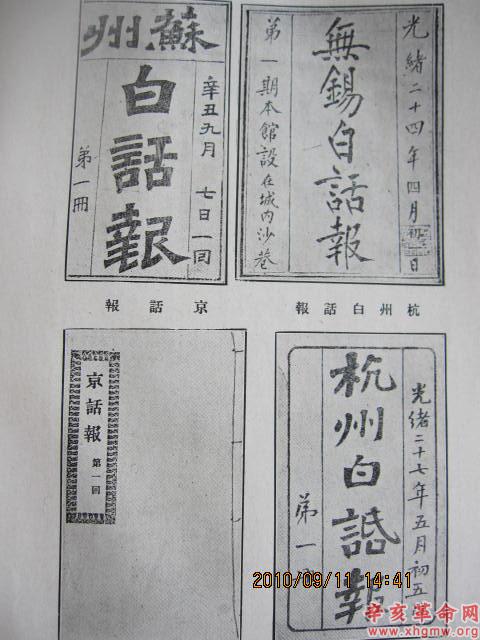 光緒二十四年四月初一日
無錫白話報
第一期本館設在城内沙巷
蘇州
辛丑九月 七日一回
白話報
第一冊
杭州白話報
京話報
光緒二十七年五月初五
杭州白話報
第一
京話報
第一回
2010/09/11 14:41
辛亥革命网
www.xhgmw.org